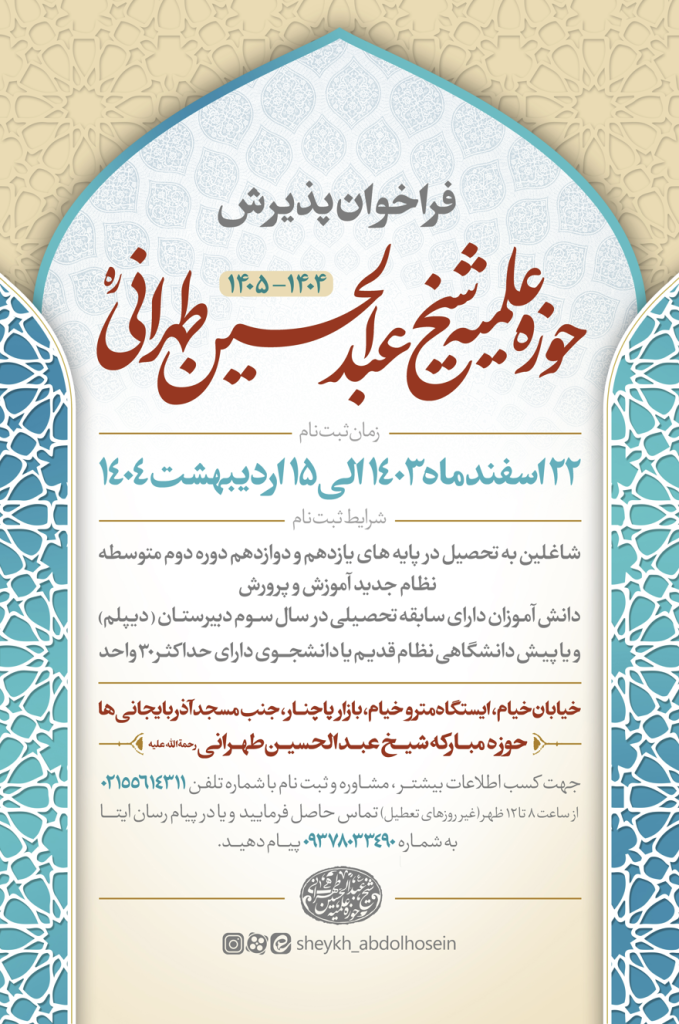 فراخوان پذیرش
۱۴۰۴-۱۴۰۵
حوزه علمیه شیخ عبدالحسین طهرانی ره
زمان ثبت نام
۲۲ اسفندماه ۱۴۰۳ الی ۱۵ اردیبهشت ۱۴۰۴
شرایط ثبت نام
شاغلین به تحصیل در پایه های یازدهم و دوازدهم دوره دوم متوسطه
نظام جدید آموزش و پرورش
دانش آموزان دارای سابقه تحصیلی در سال سوم دبیرستان (دیپلم)
و یا پیش دانشگاهی نظام قدیم یا دانشجوی دارای حداکثر ۳۰ واحد
خیابان خیام، ایستگاه مترو خیام، بازار پاچنار، جنب مسجد آذربایجانی ها
حوزه مبارکه شیخ عبدالحسین طهرانی رحمة الله علیه
جهت کسب اطلاعات بیشتر، مشاوره و ثبت نام با شماره تلفن ۰۲۱۵۵۶۱۴۳۱۱
از ساعت ۸ تا ۱۲ ظهر (غیر روزهای تعطیل) تماس حاصل فرمایید و یا در پیام رسان ایتا
به شماره ۰۹۳۷۸۰۳۳۴۹۰ پیام دهید.
حوزه علمیه شیخ عبدالحسین طهرانی
sheykh_abdolhosein